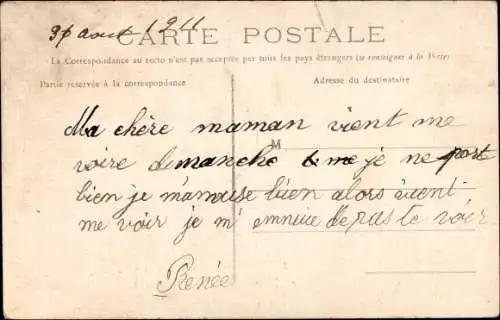 30 aout 1911
CARTE POSTALE
La Correspondance au recto n'est pas acceptée par tous les pays étrangers (se renseigner à la Poste)
Partie réservée à la correspondance
Adresse du destinataire
M
Ma chère maman vient me
voire dimanche je ne port
bien je m'amuse bien alors vient
me voir je m' ennuie de pas te voir
Renée